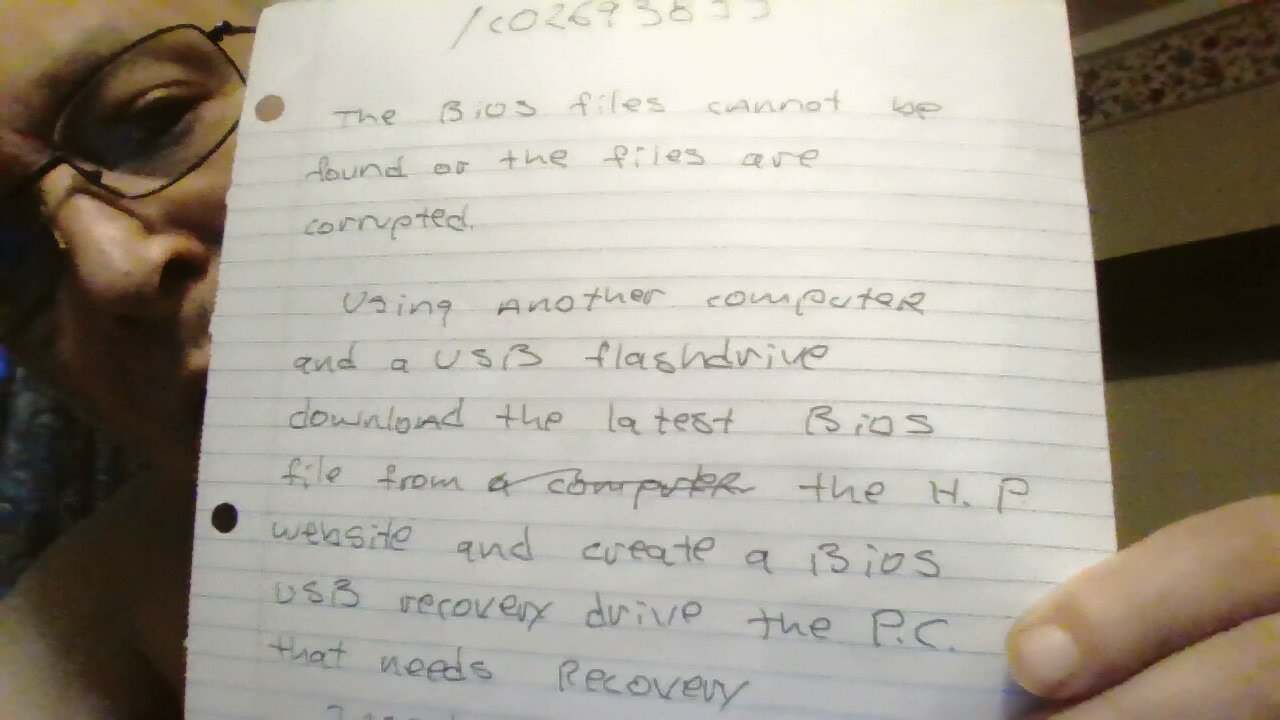 /c02693833
The Bios files cannot be
found or the files are
corrupted.
Using Another computer
and a USB flashdrive
download the latest Bios
file from a computer the H.P
website and create a Bios
USB recovery drive the P.C.
that needs Recovery